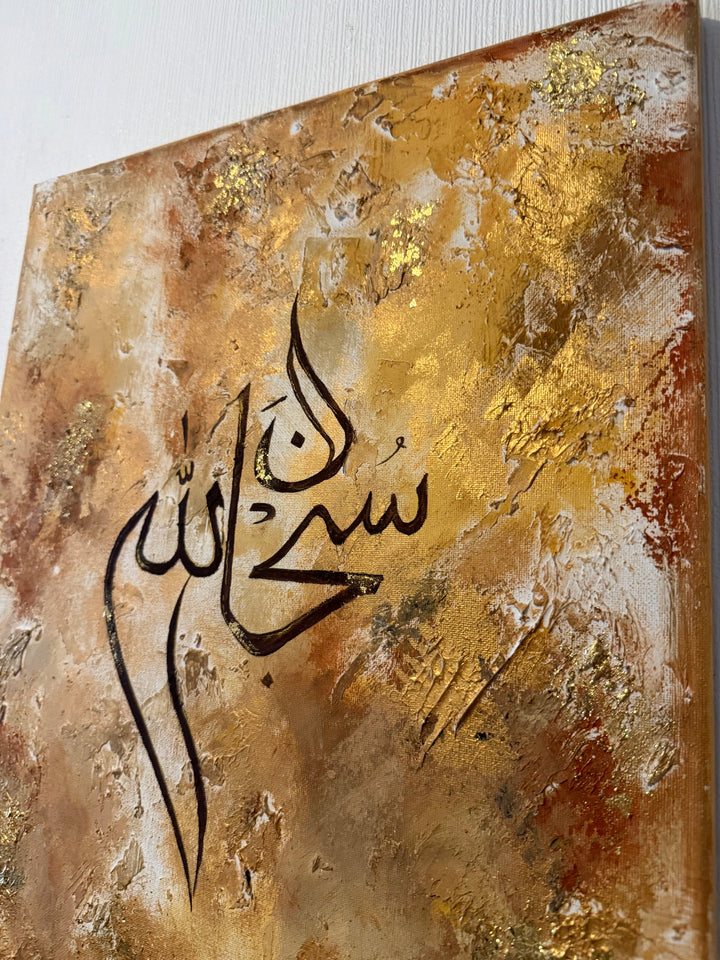 سُبحَانَ اللّٰه